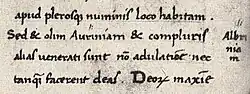 apud plerosq; numinis loco habitam.
Sed & olim Auriniam & compluris
alias venerati sunt nō adulatiōe nec
tanq̃ facerent deas. Deoꝝ maxīe
Albri
nia
m